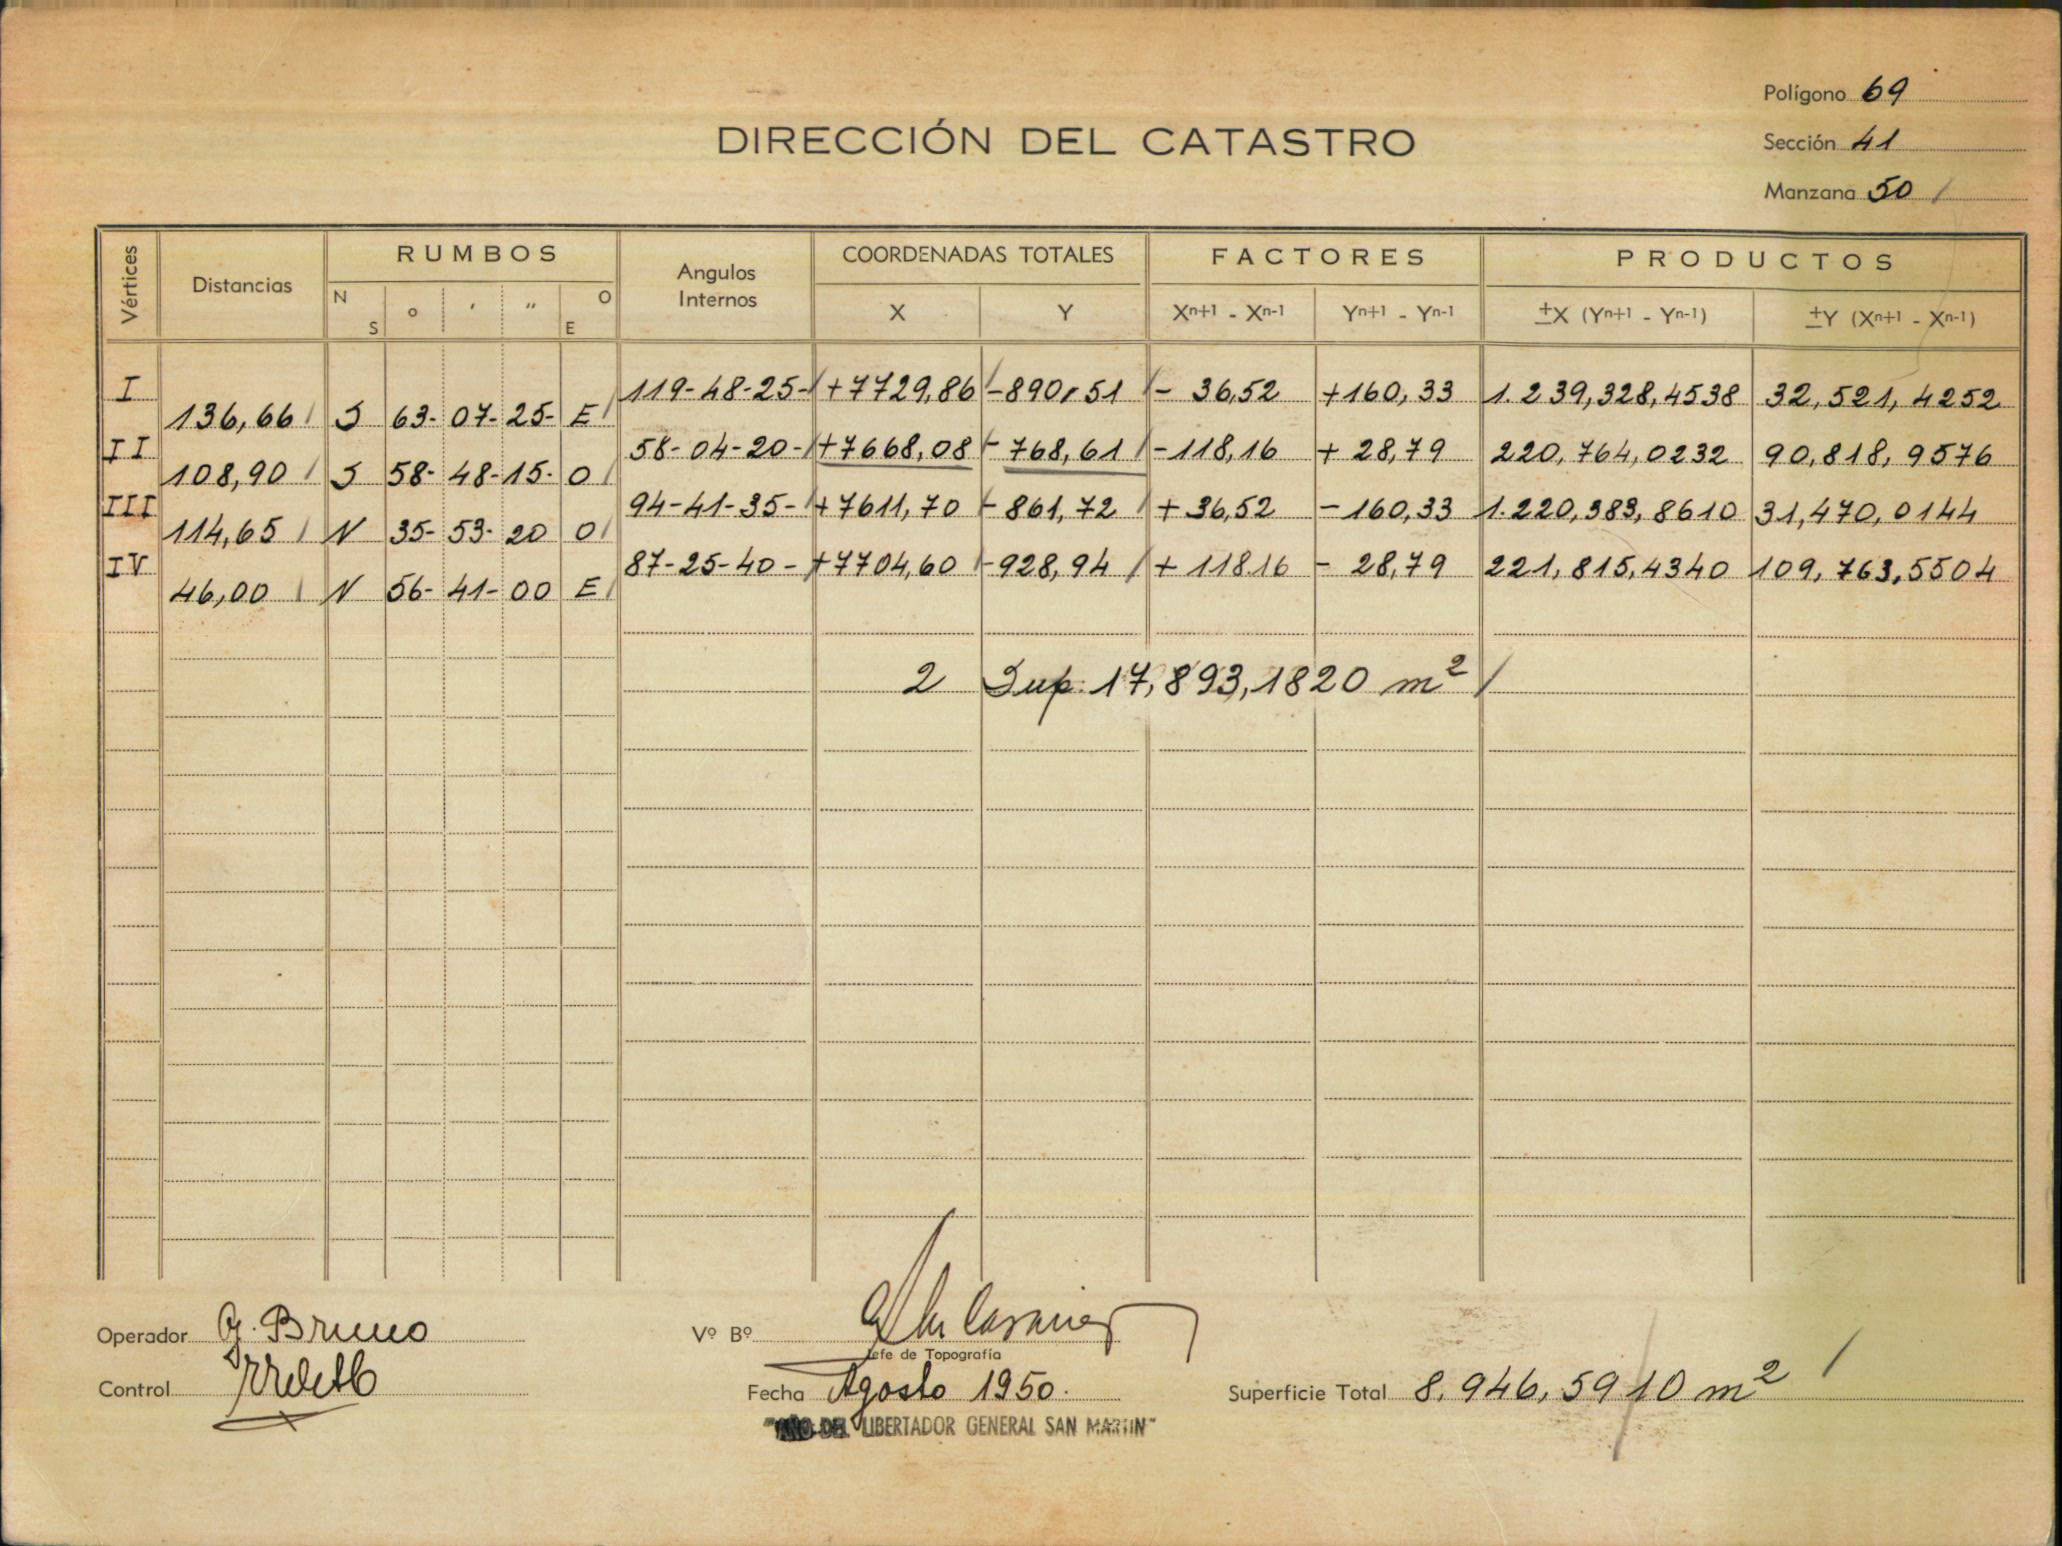 Polígono 69
DIRECCIÓN DEL CATASTRO
Sección 41
Manzana 50 /
Vértices
Distancias
RUMBOS
N S ° ′ ″ O E
Angulos Internos
COORDENADAS TOTALES
X Y
FACTORES
Xn+1 - Xn-1 Yn+1 - Yn-1
PRODUCTOS
±X (Yn+1 - Yn-1) ±Y (Xn+1 - Xn-1)
I 119-48-25- / +7729,86 / -890,51 / - 36,52 +160,33 1.239,328,4538 32,521,4252
136,66 / S 63- 07- 25- E /
II 58-04-20- / +7668,08 / - 768,61 / -118,16 + 28,79 220,764,0232 90,818,9576
108,90 / S 58- 48- 15- O /
III 94-41-35- / +7611,70 / - 861,72 / + 36,52 - 160,33 1.220,383,8610 31,470,0144
114,65 / N 35- 53- 20 O /
IV 87-25-40 - / +7704,60 / -928,94 / + 118.16 - 28,79 221,815,4340 109,763,5504
46,00 / N 56- 41- 00 E /
2 Sup. 17,893,1820 m² /
Operador G. Bruno
Vº Bº
Jefe de Topografía
Control
Fecha Agosto 1950.
Superficie Total 8.946,5910 m² /
"AÑO DEL LIBERTADOR GENERAL SAN MARTIN"